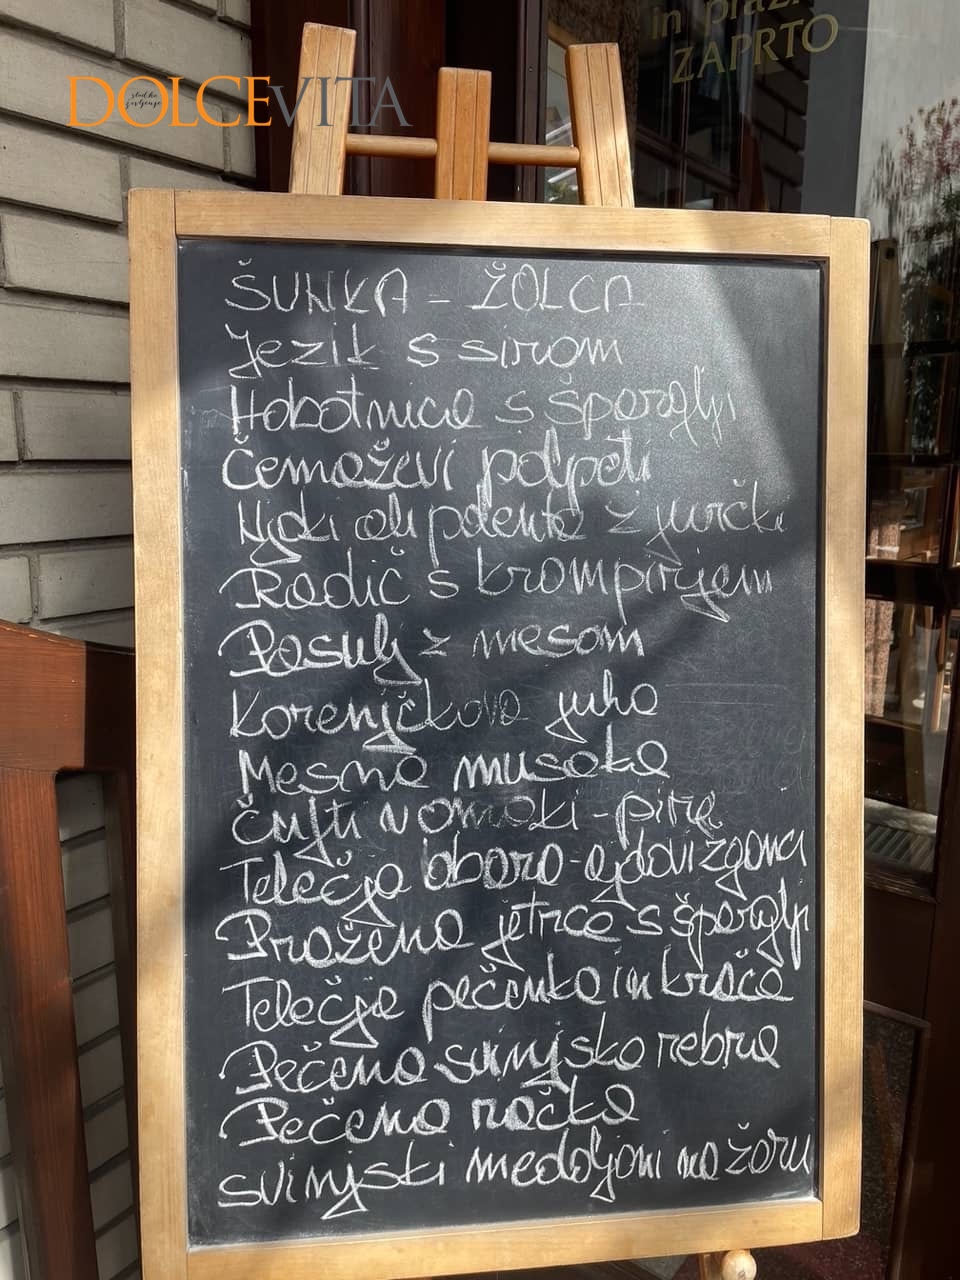 in praz
ZAPRTO
DOLCEVITA
sladko
življenje
ŠUNKA - ŽOLCA
Jezik s sirom
Hobotnica s šparglji
Čemaževi polpeti
Njoki ali polenta z jurčki
Radič s krompirjem
Pasulj z mesom
Korenjčkova juha
Mesna musaka
Čufti v omaki - pire
Telečja obara - ajdovi žganci
Pražena jetrca s šparglji
Telečja pečenka in krača
Pečena svinjska rebra
Pečena račka
svinjski medaljoni na žaru